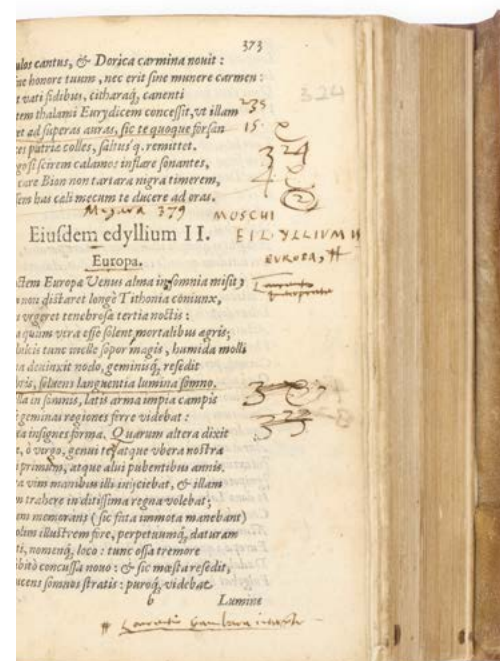 373
ulos cantus, & Dorica carmina nouit:
honore tuum, nec erit sine munere carmen:
vati fidibus, citharaq́, canenti
tem thalami Eurydicem concessit, vt illam
et ad superas auras, sic te quoque forsan
patriæ colles, saltusq. remittet.
si scirem calamos inflare sonantes,
care Bion non tartara nigra timerem,
has cali mecum te ducere ad oras.
235
15.
324
324
4
2
Megara 379
MOSCHI
Eiusdem edyllium II.
EIDYLLIUM II
Europa.
EUROPA, #
Europæ Venus alma insomnia misit,
non distaret longè Tithonia coniunx,
vrgeret tenebrosa tertia noctis:
quùm vera esse solent mortalibus ægris;
dulcis tunc melle sopor magis, humida molli
deuinxit nodo, geminiq́, resedit
soluens languentia lumina somno.
in somnis, latis arma impia campis
geminas regiones ferre videbat:
insignes forma. Quarum altera dixit
ò virgo, genui te, atque vbera nostra
primùm, atque alui pubentibus annis.
vim manibus illi inijciebat, & illam
trahere in ditissima regna volebat;
memorans (sic fata immota manebant)
olim illustrem fore, perpetuumq́, daturam
nomenq́, loco: tunc ossa tremore
concussa nouo: & sic mœsta resedit,
ucens somnos stratis: puroq́, videbat
323
b Lumine
# Laurentio Gambara interprete